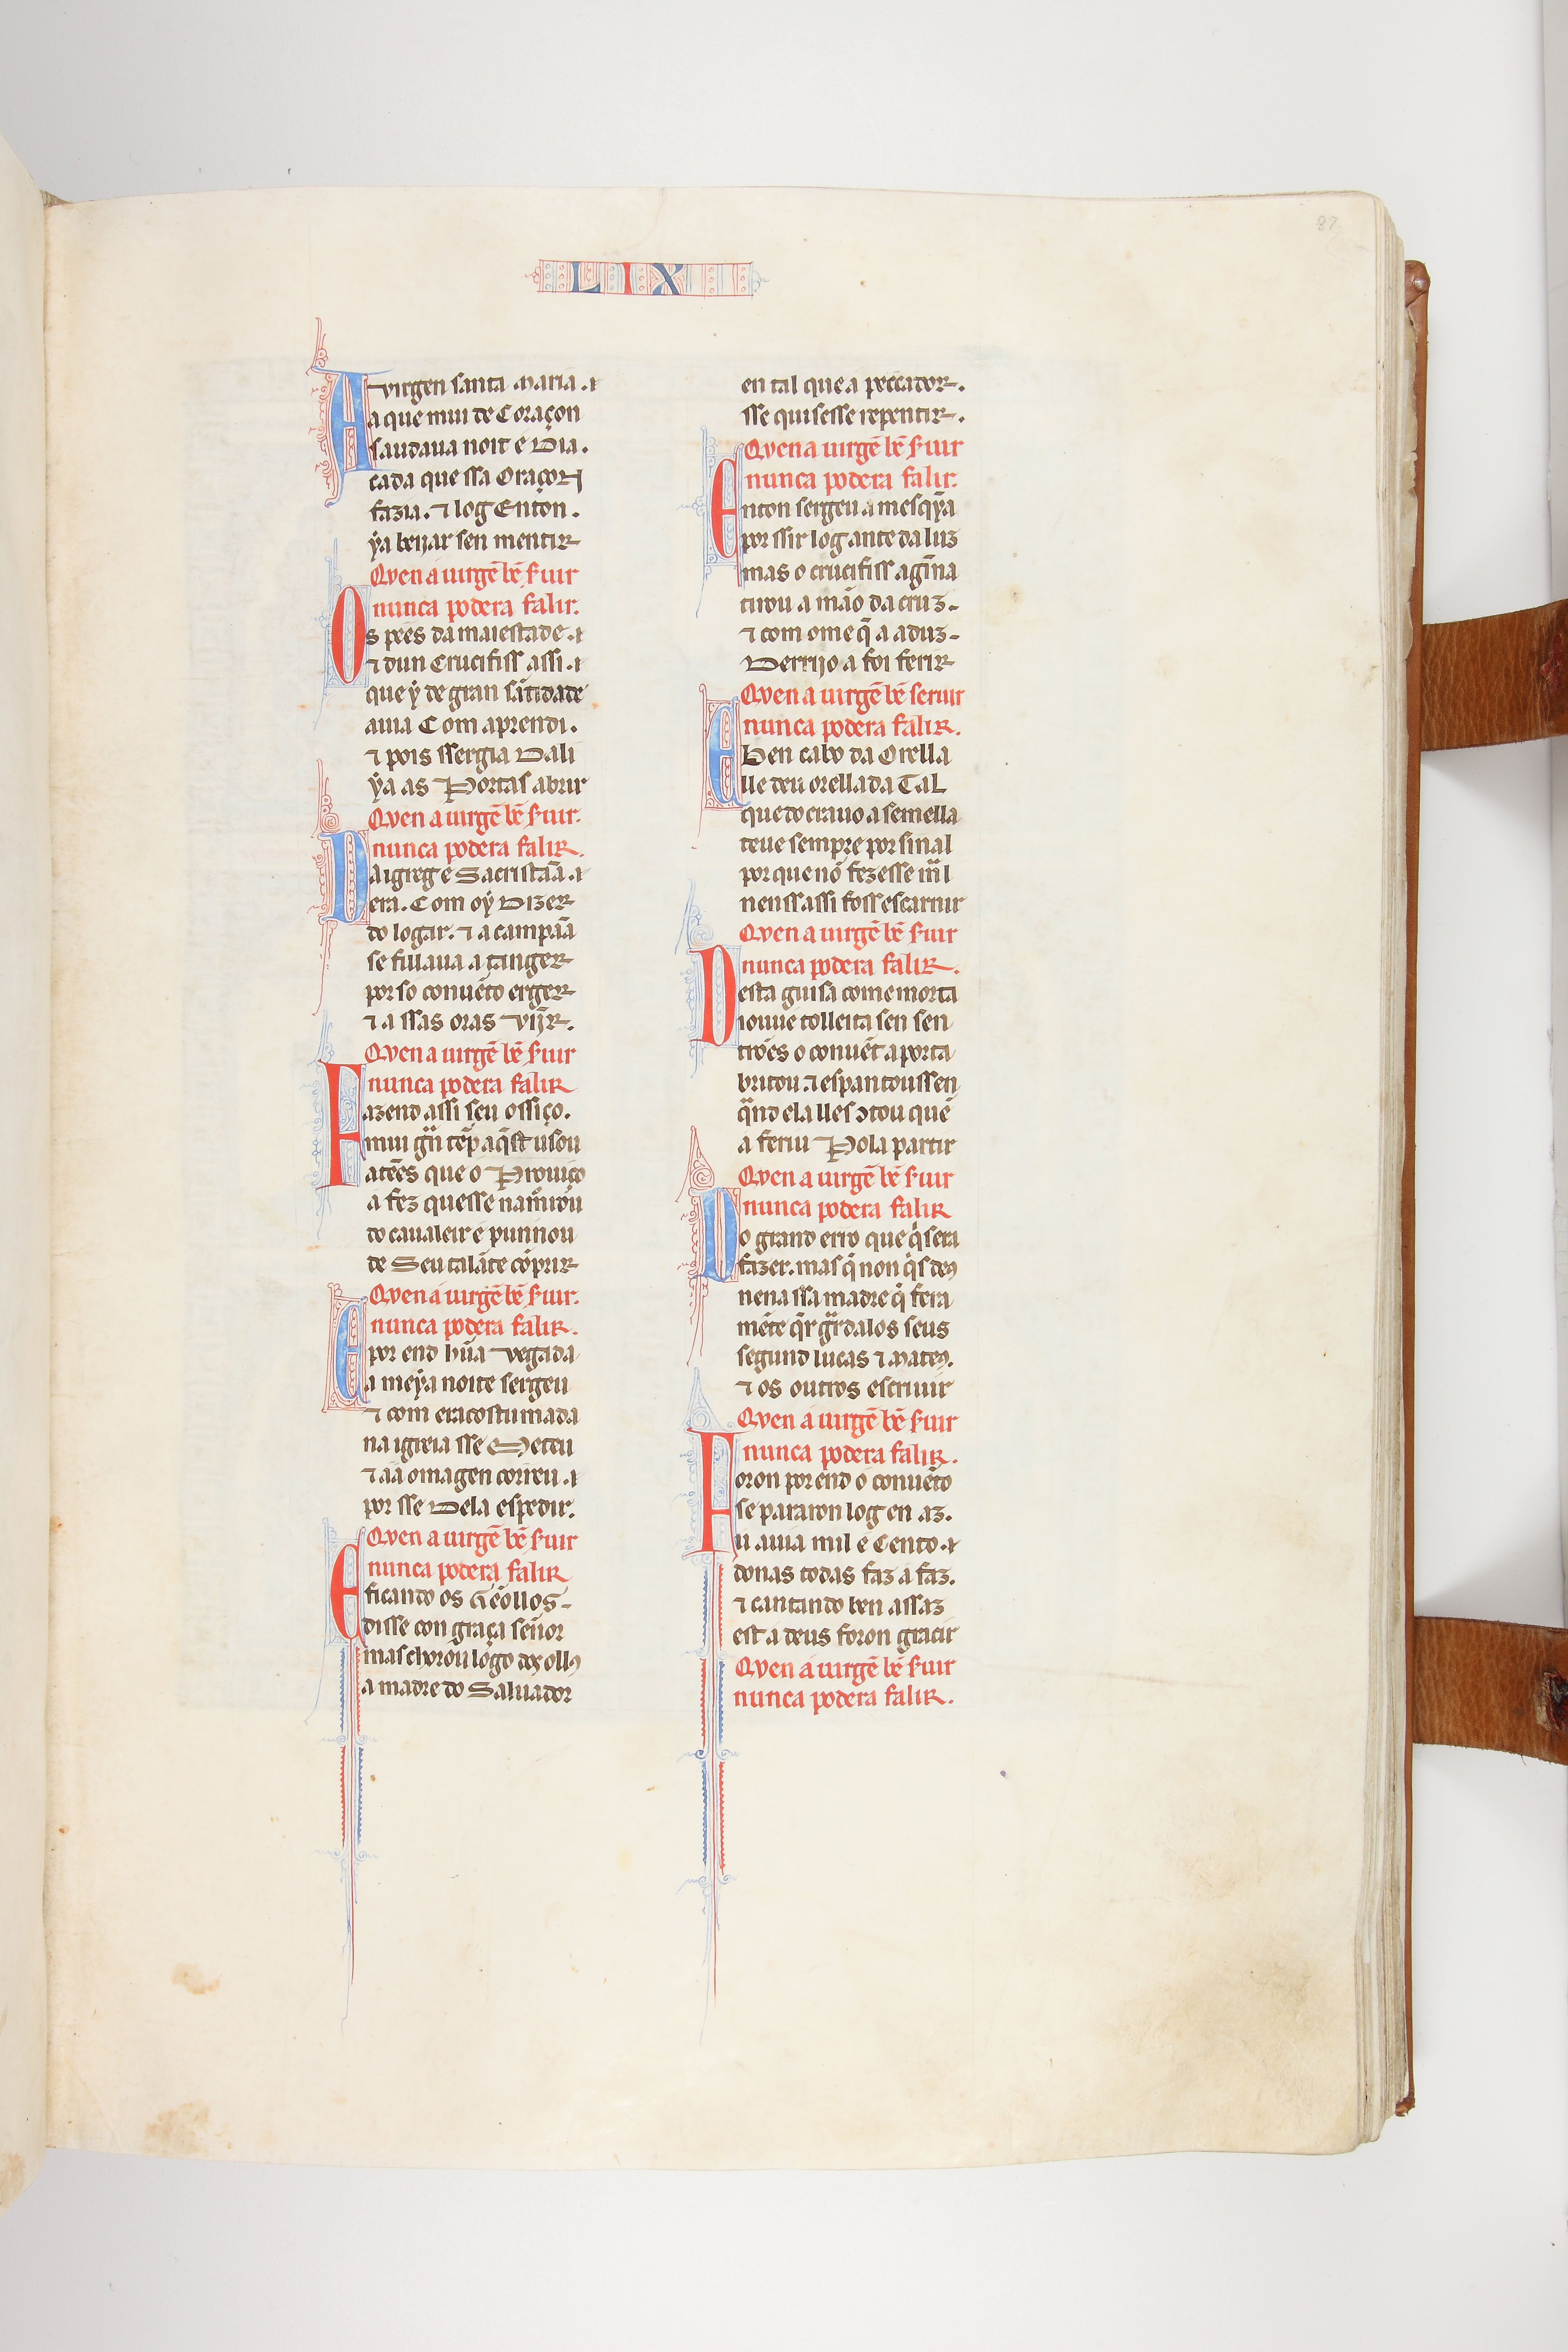 87
LIX
A virgen santa maria.
a que mui de Coraçon
saudaua noit e Dia.
cada que ssa Oraçon
fazia. ⁊ log Enton.
ýa beijar sen mentir
Quen a uirgẽ bẽ ſuir
nunca podera falir.
Os pees da maiestade.
⁊ dun Crucifiss assi.
que ý de gran sãtidade
auia Com aprendi.
⁊ pois ssergia Dali
ýa as Portas abrir
Quen a uirgẽ bẽ ſuir.
nunca podera falir.
Da igreg e Sacristãa.
era. Com oý Dizer
do logar. ⁊ a campãa
se fillaua a tanger
por so conuẽto erger
⁊ a ssas oras vĩjr.
Quen a uirgẽ bẽ ſuir
nunca podera falir
Fazend assi seu ossiço.
mui grã tẽp aq̃st usou
atẽes que o Prouiço
a fez quesse namorou
do caualeir e punnou
de Seu talãte cõprir
Quen a uirgẽ bẽ ſuir.
nunca podera falir.
E por end hũa vegada
a meýa noite sergeu
⁊ com era costumada
na igreia sse Meteu
⁊ aa omagen correu.
por sse Dela espedir.
Quen a uirgẽ bẽ ſuir
nunca podera falir
E ficando os Gẽollos
disse con graça sẽnor
mas chorou logo dos ollꝰ
a madre do Saluador
en tal que a peccador.
sse quisesse repentir.
Quen a uirgẽ bẽ ſuir
nunca podera falir.
Enton sergeu a mesq̃ýa
por ssir log ante da luz
mas o crucifiss agĩna
tirou a mão da cruz
⁊ com ome q̃ a aduz
Derrijo a foi ferir
Quen a uirgẽ bẽ seruir
nunca podera falir.
E ben cabo da Orella
lle deu orellada Tal
que do crauo a semella
teue sempre por sinal
por que nõ fezesse mal
neu ssassi foss escarnir
Quen a uirgẽ bẽ ſuir
nunca podera falir.
Desta guisa come morta
iouue tolleita sen sen
trões o conuẽt a porta
britou. ⁊ espantoussen
quãnd ela lles ↄtou quẽ
a feriu Pola partir
Quen a uirgẽ bẽ ſuir
nunca podera falir
Do grand erro que q̃sera
fazer. mas q̃ non q̃s deꝰ
nen a ssa madre q̃ fera
mẽte q̃r grãdalos seus
segund lucas ⁊ mateꝰ.
⁊ os outros escriuir
Quen a uirgẽ bẽ ſuir
nunca podera falir.
Foron por end o conuẽto
se pararon log en az.
u auia mil e Cento.
donas todas faz a faz.
⁊ cantando ben assaz
est a deus foron gracir
Quen a uirgẽ bẽ ſuir
nunca podera falir.